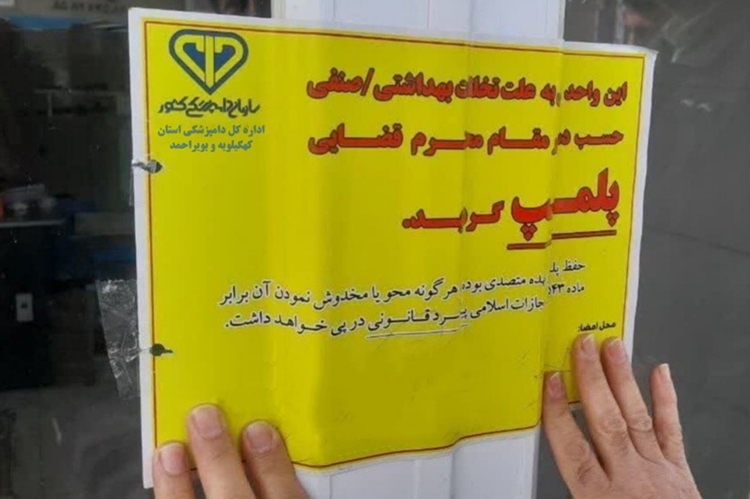 سازمان دامپزشکی کشور
اداره کل دامپزشکی استان
کهگیلویه و بویراحمد
این واحد به علت تخلفات بهداشتی/صنفی
حسب دستور مقام محترم قضایی
پلمپ گردید.
حفظ پلمپ به عهده متصدی بوده هرگونه محو یا مخدوش نمودن آن برابر
ماده ۵۴۳ مجازات اسلامی پیگرد قانونی در پی خواهد داشت.
محل امضاء: